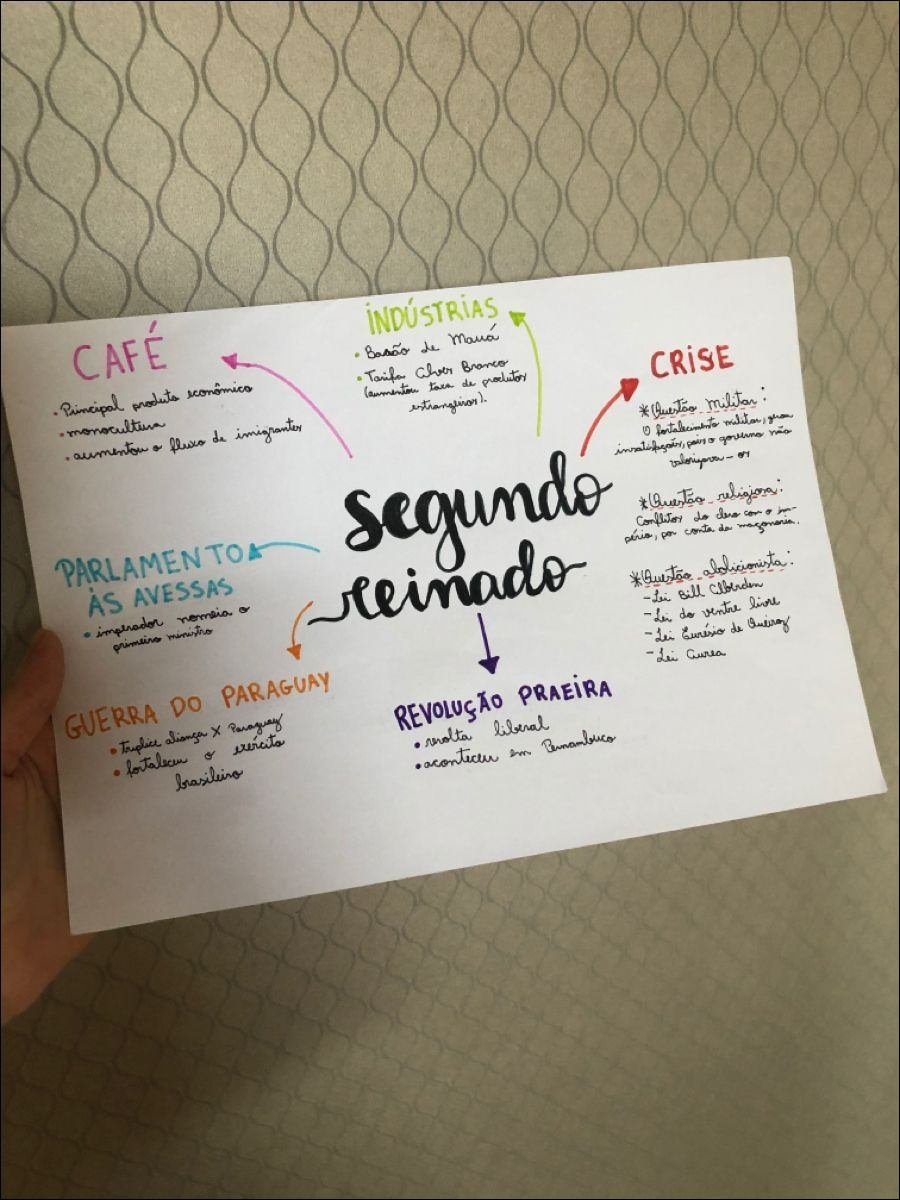 CAFÉ
• Principal produto econômico
• monocultura
• aumentou o fluxo de imigrantes
INDÚSTRIAS
• Barão de Mauá
• Tarifa Alves Branco
(aumentou taxa de produtos
estrangeiros).
CRISE
*Questão Militar:
O fortalecimento militar, gera
insatisfação, pois o governo não
valorizava-os
*Questão religiosa:
Conflitos do clero com o im-
pério, por conta da maçonaria.
*Questão abolicionista:
- Lei Bill Aberdeen
- Lei do ventre livre
- Lei Eusésio de Queiroz
- Lei Aurea
segundo
reinado
PARLAMENTO
ÀS AVESSAS
• imperador nomeia o
primeiro ministro
GUERRA DO PARAGUAY
• tríplice aliança X Paraguay
• fortaleceu o exército
brasileiro
REVOLUÇÃO PRAEIRA
• revolta liberal
• aconteceu em Pernambuco